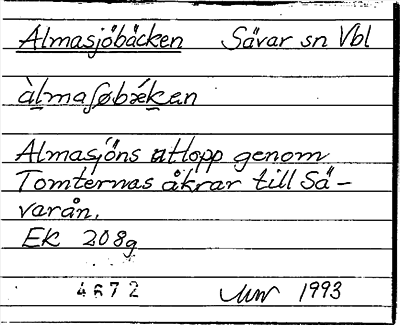 Almasjöbäcken Sävar sn Vbl
àlmaʃøbǽken
Almasjöns utlopp genom
Tomternas åkrar till Sä-
varån.
EK 208g
4672 1993